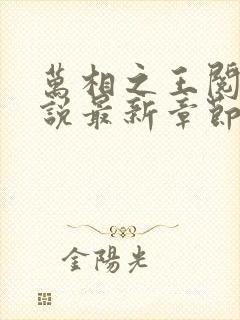 萬相之王閱
說最新章節
金陽光